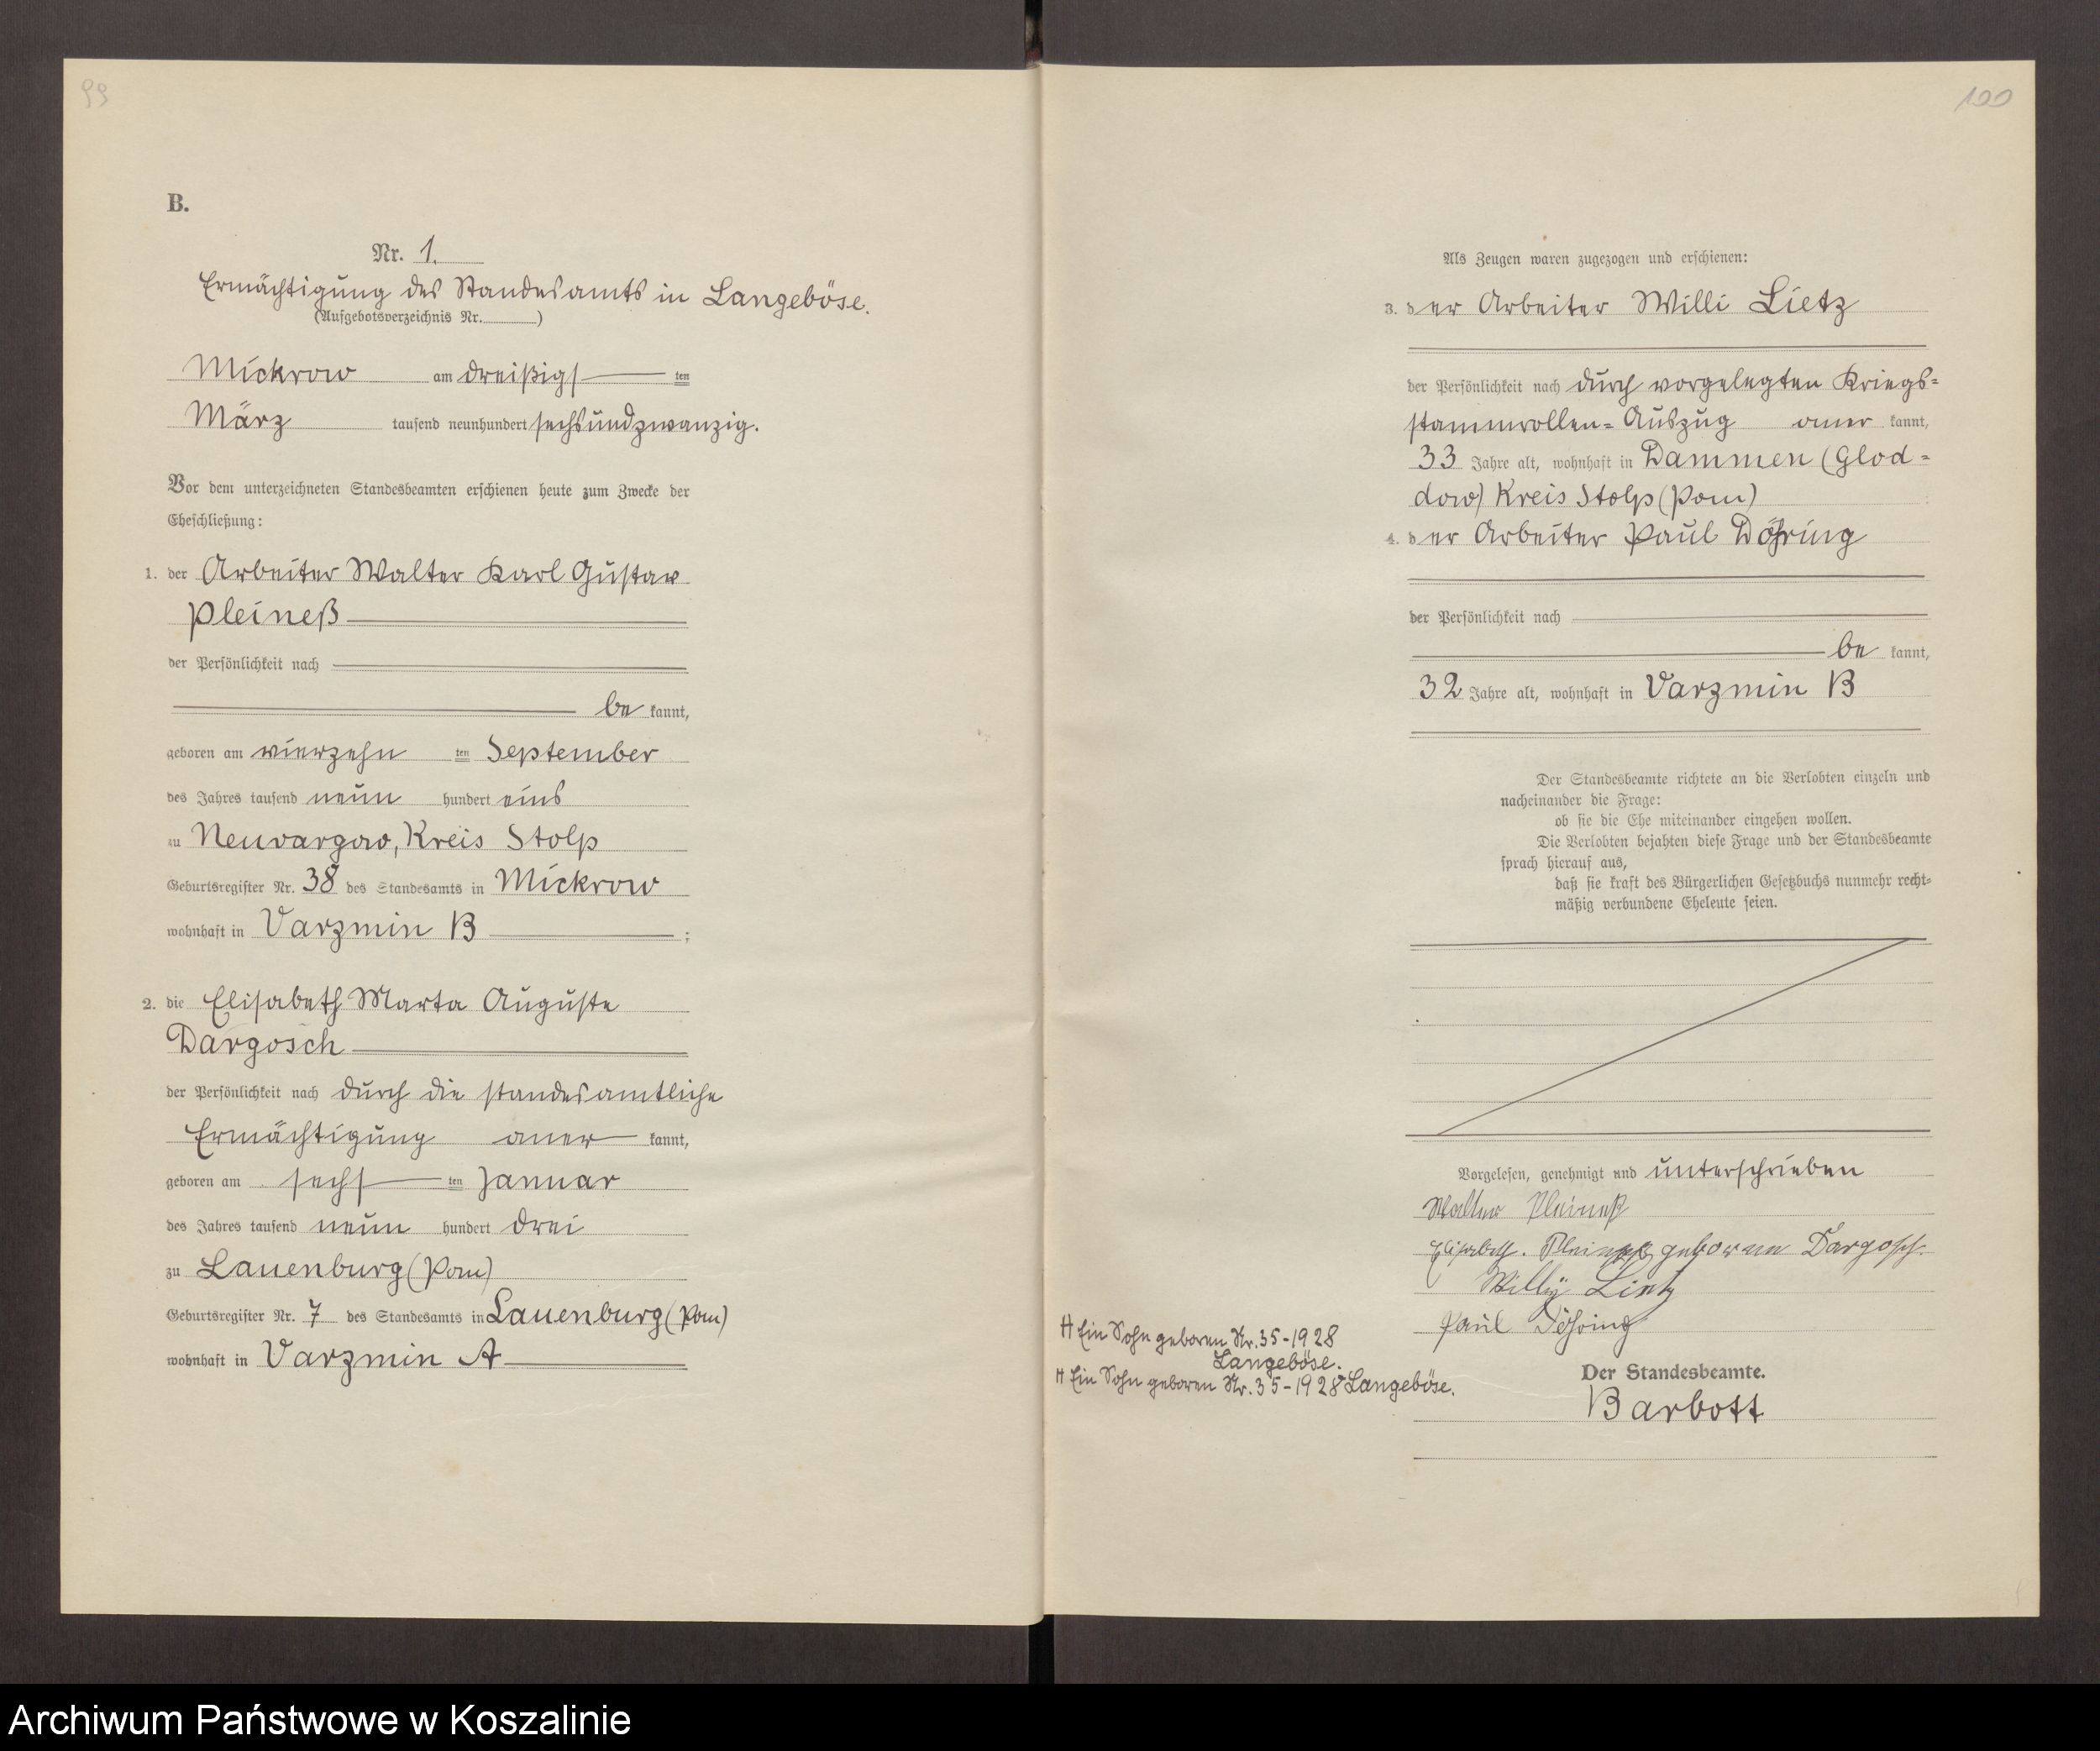 99
B.
Nr. 1.
Ermächtigung des Standesamts in Langeböse.
(Aufgebotsverzeichnis Nr. )
Mickrow am dreißigs ten
März tausend neunhundert sechsundzwanzig.
Vor dem unterzeichneten Standesbeamten erschienen heute zum Zwecke der
Eheschließung:
1. der Arbeiter Walter Karl Gustav
Pleineß
der Persönlichkeit nach
be kannt,
geboren am vierzehn ten September
des Jahres tausend neun hundert eins
zu Neuvargow, Kreis Stolp
Geburtsregister Nr. 38 des Standesamts in Mickrow
wohnhaft in Varzmin B ;
2. die Elisabeth Marta Auguste
Dargosch
der Persönlichkeit nach durch die standesamtliche
Ermächtigung aner kannt,
geboren am sechs ten Januar
des Jahres tausend neun hundert drei
zu Lauenburg (Pom)
Geburtsregister Nr. 7 des Standesamts in Lauenburg (Pom)
wohnhaft in Varzmin A
100
Als Zeugen waren zugezogen und erschienen:
3. der Arbeiter Willi Lietz
der Persönlichkeit nach durch vorgelegten Kriegs=
stammrollen=Auszug aner kannt,
33 Jahre alt, wohnhaft in Dammen (Glod=
dow) Kreis Stolp (Pom)
4. der Arbeiter Paul Döhring
der Persönlichkeit nach
be kannt,
32 Jahre alt, wohnhaft in Varzmin B
Der Standesbeamte richtete an die Verlobten einzeln und
nacheinander die Frage:
ob sie die Ehe miteinander eingehen wollen.
Die Verlobten bejahten diese Frage und der Standesbeamte
sprach hierauf aus,
daß sie kraft des Bürgerlichen Gesetzbuchs nunmehr recht=
mäßig verbundene Eheleute seien.
Vorgelesen, genehmigt und unterschrieben
Walter Pleineß
Elisabeth. Pleineß geborene Dargosch.
Willy Lietz
Paul Döhring
H Ein Sohn geboren Nr. 35-1928
Langeböse.
H Ein Sohn geboren Nr. 35-1928 Langeböse.
Der Standesbeamte.
Barbott
Archiwum Państwowe w Koszalinie